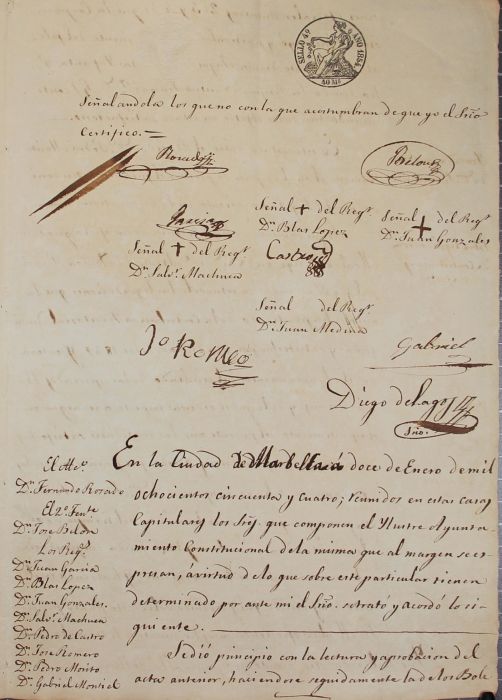 SELLO 4º AÑO 1854
40 MS
Señalandola los que no con la que acostumbran de que yo el Srio
Certifico.=
Rosado
Belon
Garcia
Señal + del Regr
Dn Blas Lopez
Señal + del Regr
Dn Juan Gonzales
Señal + del Regr
Dn Salvr Machuca
Castro
Señal del Regr
Dn Juan Medina
Jo Romeo
Gabriel
Diego de Lagos
Srio.
El Alce
Dn Fernando Rosado
El 2º Tente
Dn Jose Belon
Los Regs
Dn Juan Garcia
Dn Blas Lopez
Dn Juan Gonzales
Dn Salvr Machuca
Dn Pedro de Castro
Dn Jose Romero
Dn Pedro Moñto
Dn Gabriel Montiel
En la Ciudad de Marbella á doce de Enero de mil
ochocientos cincuenta y cuatro; reunidos en estas casas
Capitulares los Srs. que componen el Ylustre Ayunta
miento Constitucional de la misma que al margen se ex
presan, á virtud de lo que sobre este particular tienen
determinado por ante mi el Srio. se trató y acordó lo si-
guiente.
Se dió principio con la lectura y aprobacion del
acta anterior, haciendose seguidamente la de los Bole